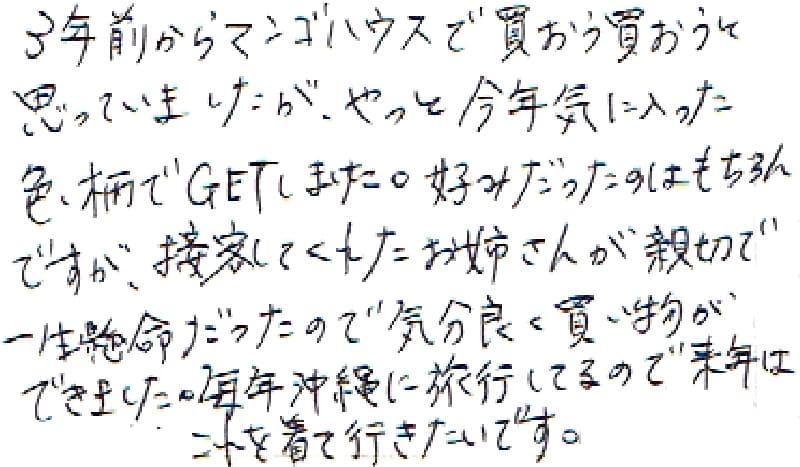 3年前からマンゴハウスで買おう買おうと
思っていましたが、やっと今年気に入った
色、柄でGETしました。好みだったのはもちろん
ですが、接客してくれたお姉さんが親切で
一生懸命だったので気分良く買い物が
できました。毎年沖縄に旅行してるので来年は
これを着て行きたいです。